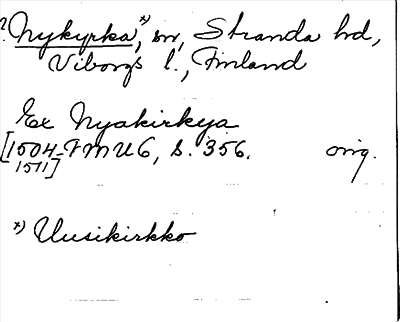 ? Nykyrka,*) sn, Stranda hd,
Viborgs l., Finland
Ex Nyakirkya
[1504-FMU6, s. 356. orig.
1511]
*) Uusikirkko